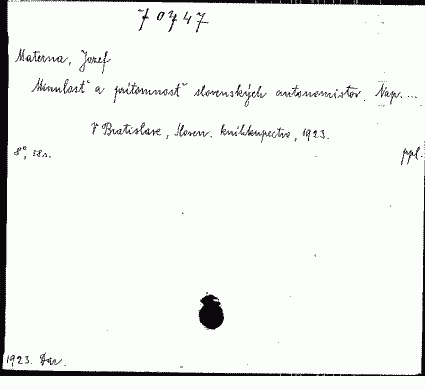 70747
Materna, Jozef
Minulosť a prítomnosť slovenských autonomistov. Nap. ...
V Bratislave, Sloven. kníhkupectvo, 1923.
8°, 58 s. ppl.
1923. Dar.